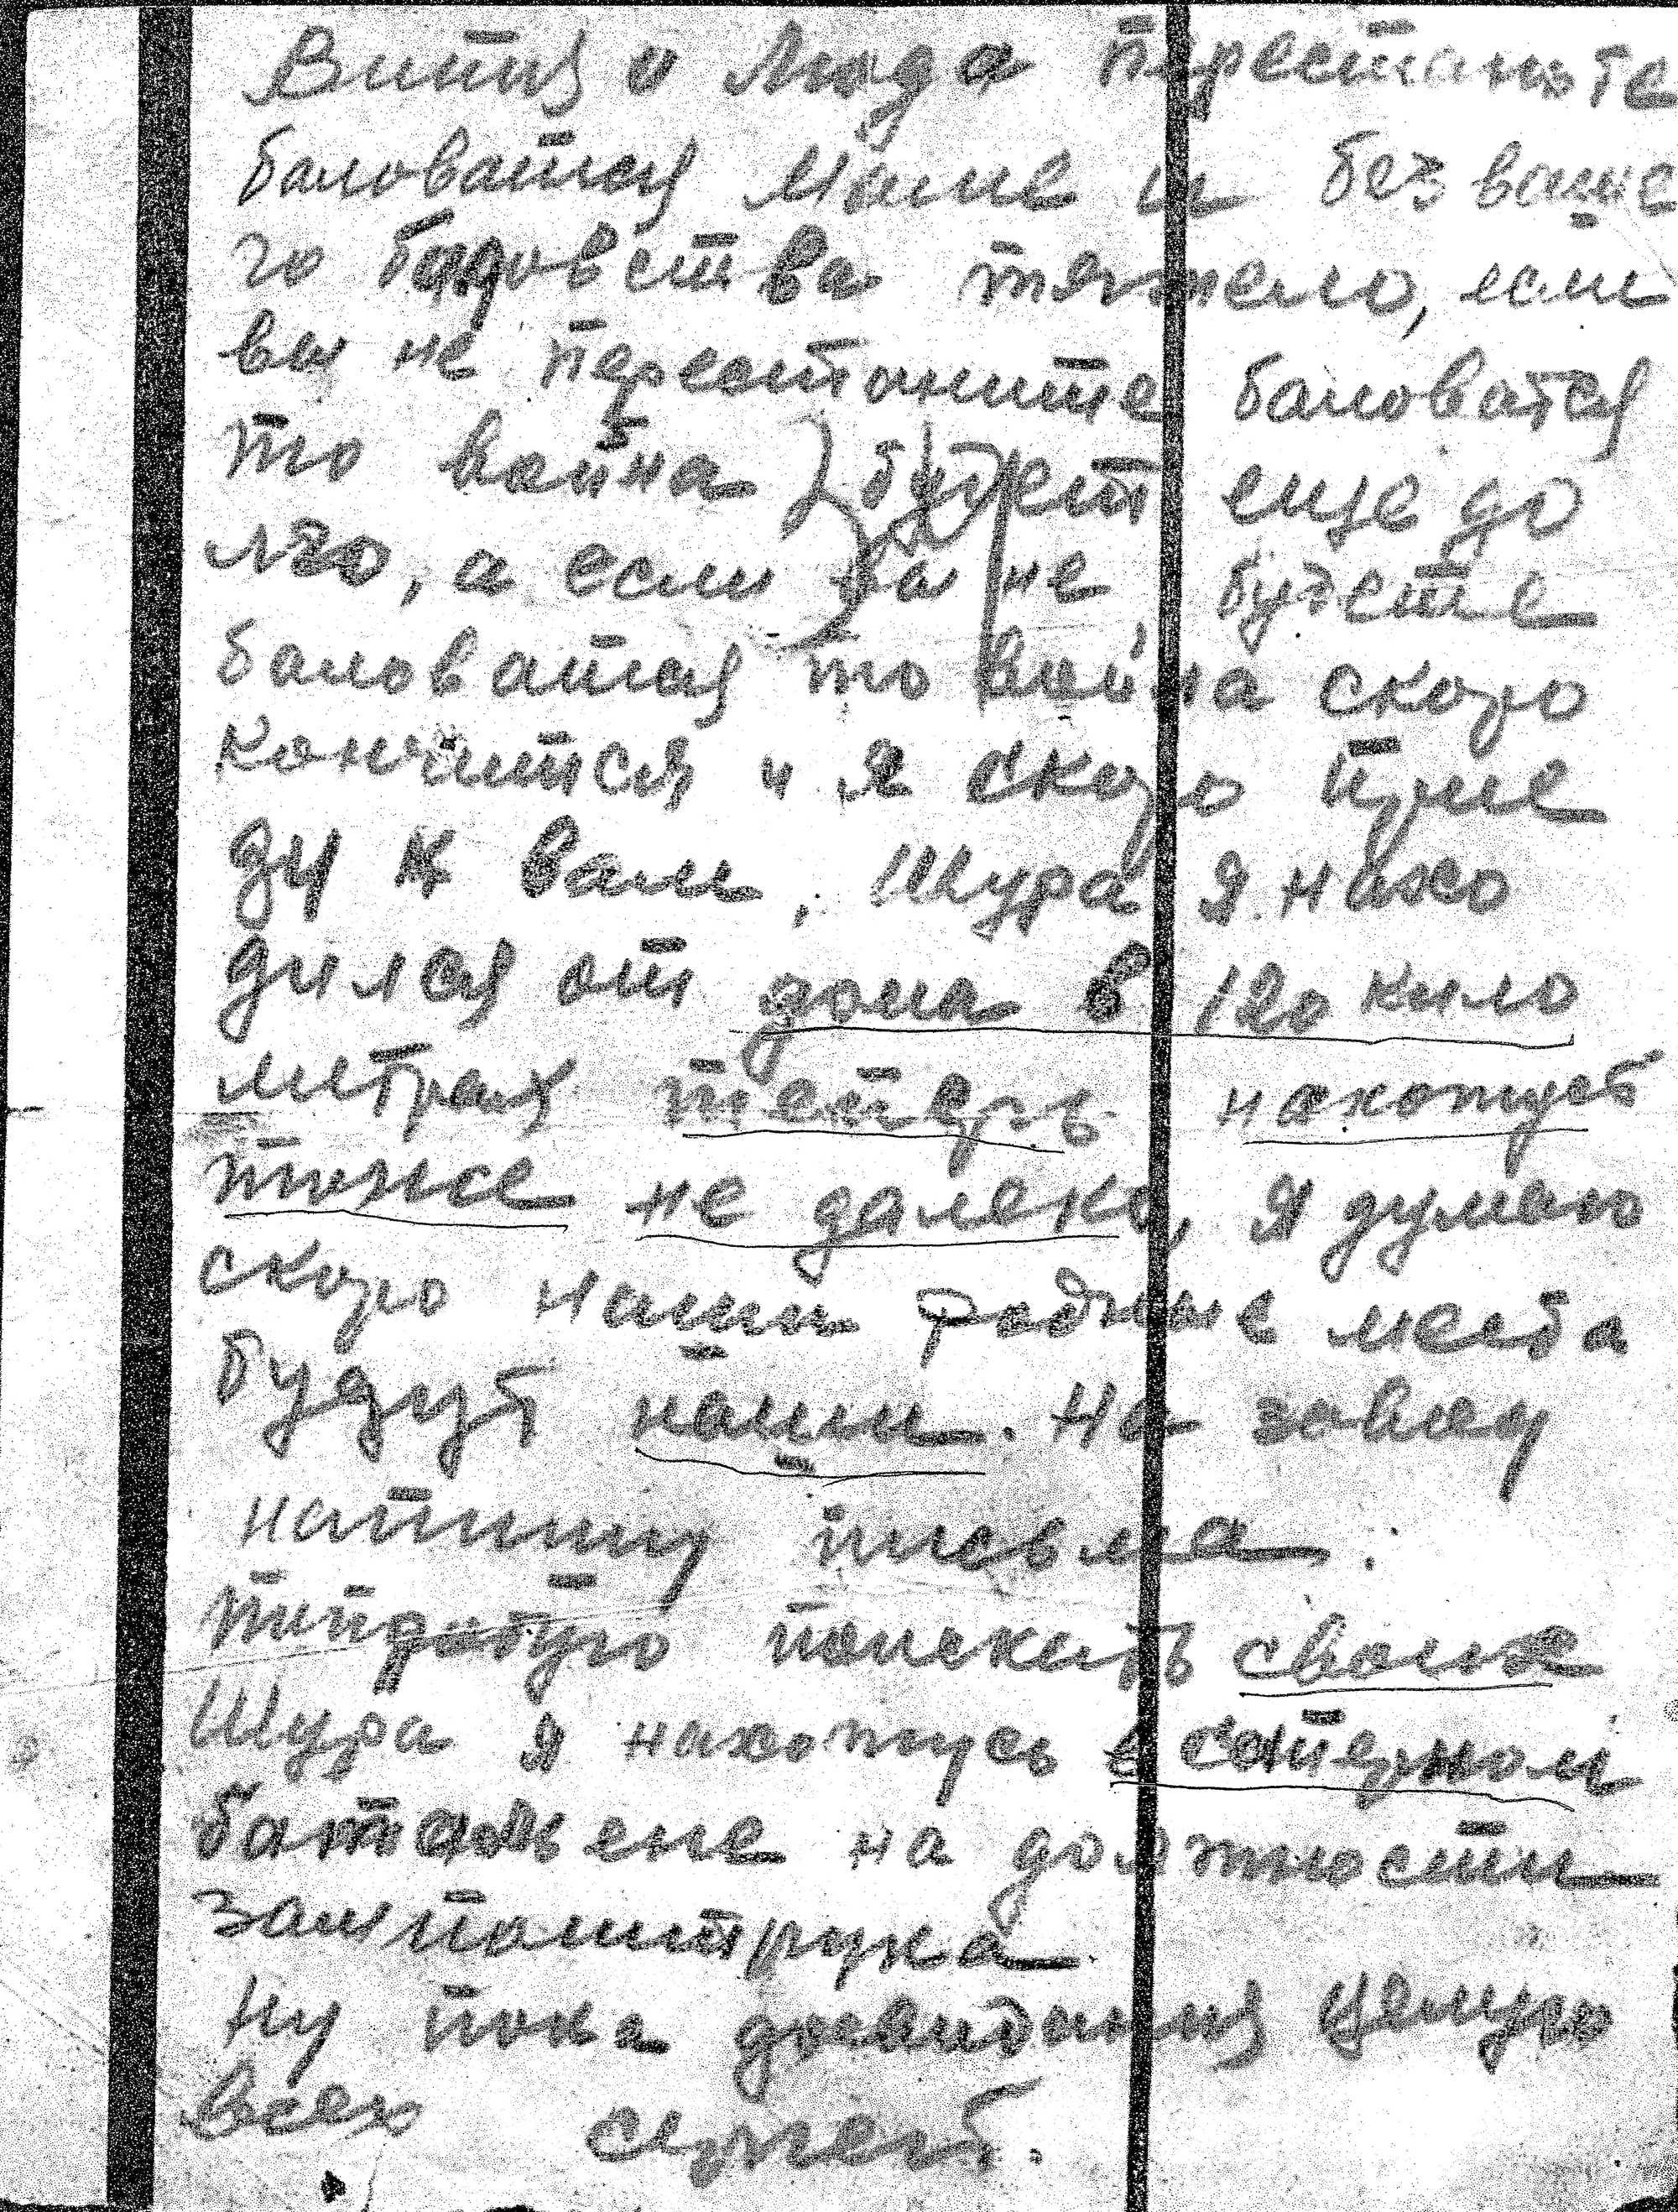 Витя и Люда перестаньте
баловатся маме и без ваше
го баловства тяжело, если
вы не перестаните баловатся
то война будет еще до
лго, а если вы не будете
баловатся то война скоро
кончится и я скоро прие
ду к вам, Шура я нахо
дился от дома в 120 кило
метрах теперь нахожусь
тоже не далеко, я думаю
скоро наши родные места
будут наши. На завод
напишу письма.
поискать своих
Шура я нахожусь в саперном
баталъене на должности
зампоштрука
Ну пока досвидания целую
всех Сергей.